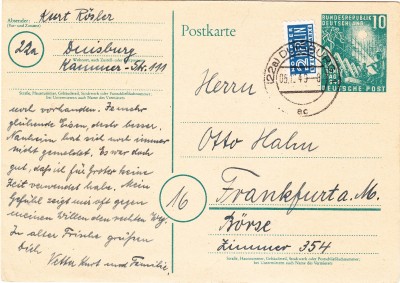 Absender: Kurt Rösler
22a Duisburg
Kammer-Str. 111
Straße, Hausnummer, Gebäudeteil, Stockwerk oder Postschließfachnummer,
bei Untermietern auch Name des Vermieters
noch vorhanden. Je mehr
glühende Eisen, desto besser.
Nauheim hat sich noch immer
nicht gemeldet. Es war doch
gut, daß ich für Groß keine
Zeit verwendet habe. Mein
Gefühl zeigt mir oft gegen
meinen Willen den rechten Weg.
In alter Frische grüßen
Dich
Vetter Kurt und Familie.
Postkarte
NOTOPFER
2 BERLIN
STEUERMARKE
(22a) DUISBURG
ac
BUNDESREPUBLIK
DEUTSCHLAND
10
DEUTSCHE POST
Herrn
Otto Hahn
16 Frankfurt a. M.
Börse
Zimmer 354
Straße, Hausnummer, Gebäudeteil, Stockwerk oder Postschließfachnummer,
bei Untermietern auch Name des Vermieters